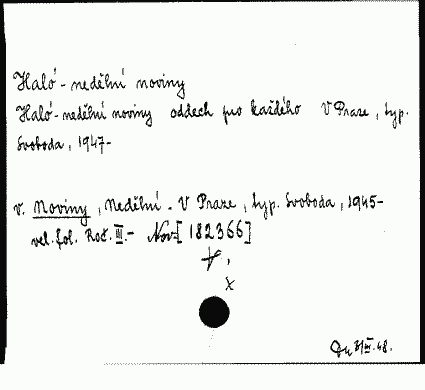 Haló - nedělní noviny
Haló - nedělní noviny oddech pro každého V Praze, typ.
Svoboda, 1947-
v. Noviny, Nedělní. V Praze, typ. Svoboda, 1945-
vel. fol. Roč. III.- Nov. [182366]
x
48.